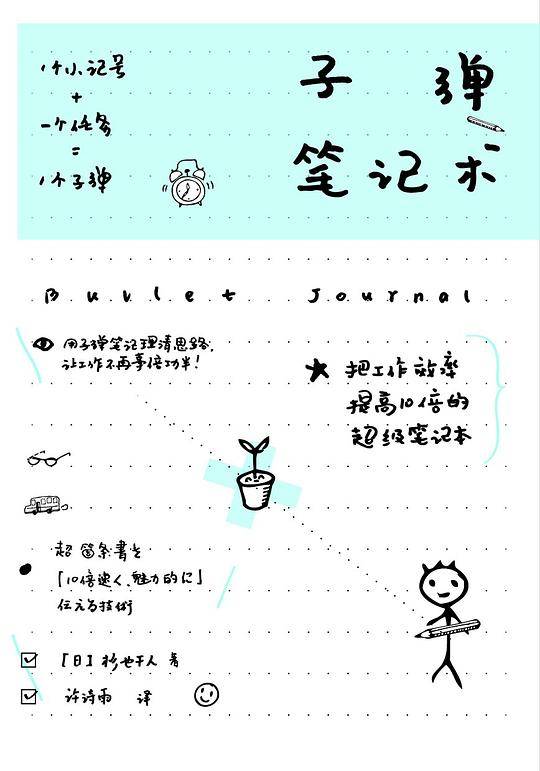 1个小记号
+
一个任务
=
1个子弹
子弹
笔记术
Bullet Journal
用子弹笔记理清思路,
让工作不再事倍功半!
把工作效率
提高10倍的
超级笔记本
超 箇条書き
「10倍速く、魅力的に」
伝える技術
[日] 杉也千人 著
许诗雨 译